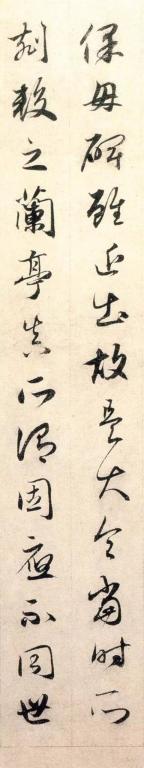 保母碑雖近出故是大令當時所
刻較之蘭亭真所謂固應不同世